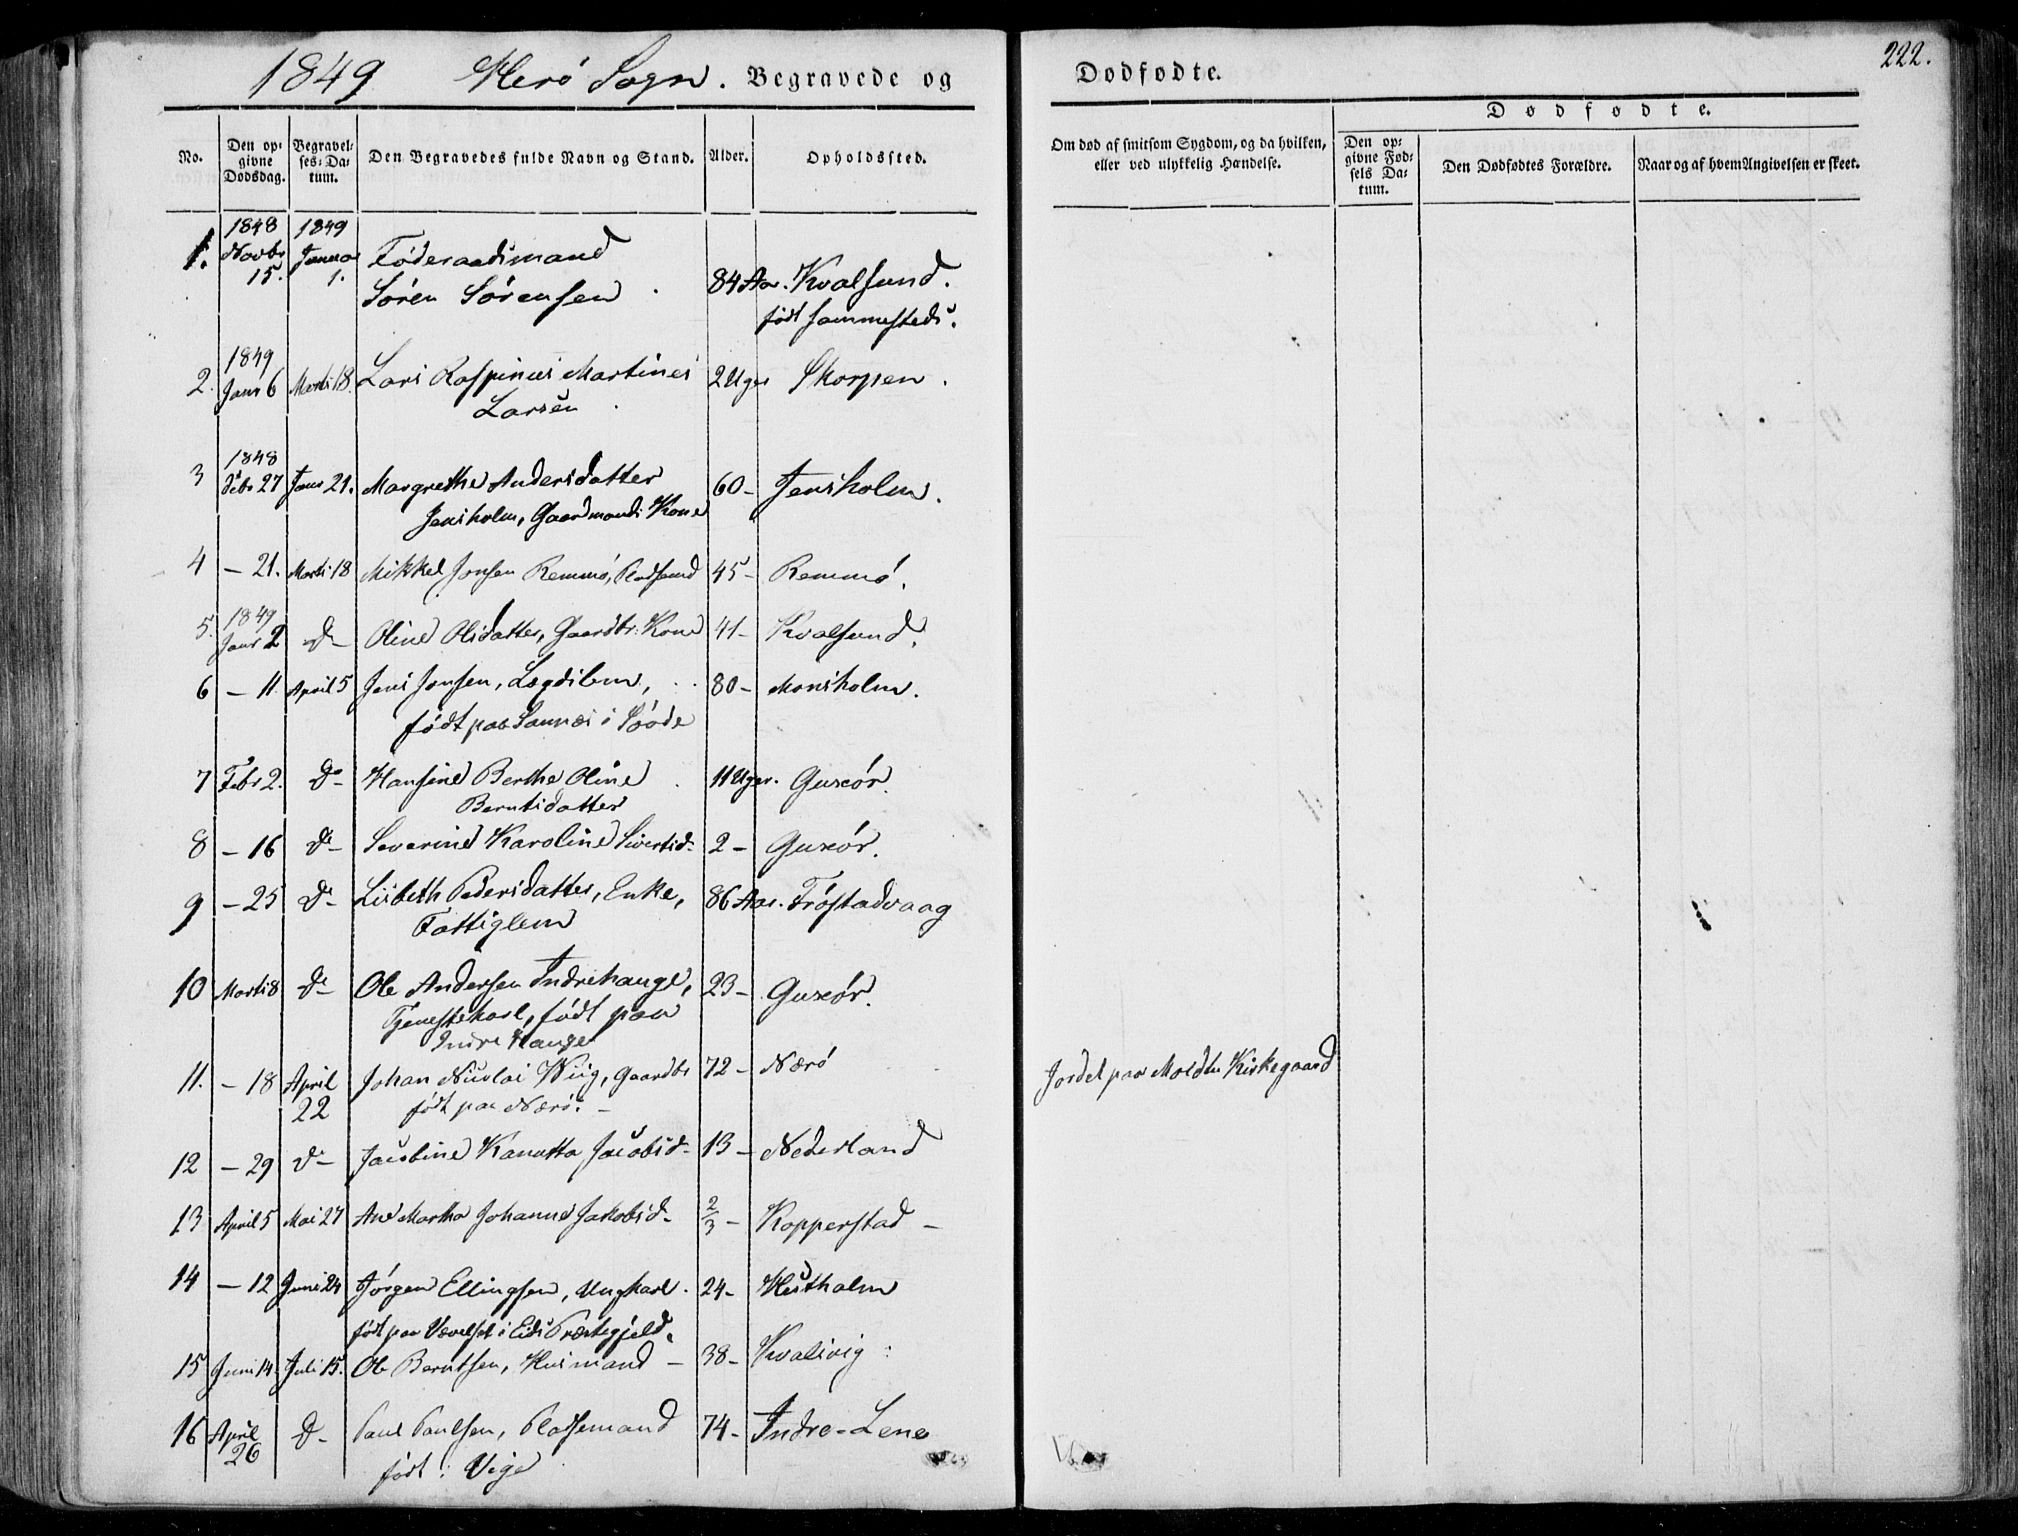 1849 Herö Sogn. Begravede og
Dødfødte.
222.
No.
Den opgivne Dødsdag.
Begravelses-Datum.
Den Begravedes fulde Navn og Stand.
Alder.
Opholdssted.
Om død af smitsom Sygdom, og da hvilken, eller ved ulykkelig Hændelse.
Dødfødte.
Den opgivne Fødsels Datum.
Den Dødfødtes Forældre.
Naar og af hvem Angivelsen er skeet.
1848 1849
1. Novbr 15. Januar 1. Föderaadsmand
Sören Sörensen 84 Aar. Kvalsund.
födt sammesteds.
1849
2. Janr 6 Marts 18. Lars Raspinus Martines 2 Uger Skorpen.
Larsen
1848
3 Debr 27 Janr 21. Margrethe Andersdatter 60- Jensholm.
Jensholm, Gaardmands Kone
4 - 21. Marts 18 Mikkel Jonsen Remmö, Pladsmd 45- Remmö.
1849
5. Janr 2 Do- Oline Olsdatter, Gaardbr. Kone 41- Kvalsund.
6 - 11. April 5 Jens Jensen, Lægdslem, 80- Monsholm.
födt paa Sannæs i
7 Febr 2. Do- Hansine Berthe Oline 11 Uger. Guscör.
Berntsdatter
8 - 16 Do- Severine Karoline Sivertsd- 2 - Guscör.
9 - 25 Do- Lisbeth Pedersdatter, Enke, 86 Aar. Fröstadvaag
Fattiglem
10 Marts 8 Do- Ole Andersen Indrehauge, 23- Guscör.
Tjenestekarl, födt paa
Indre Hauge
11. - 18 April 22 Johan Nicolai Wiig, Gaardbr 72- Nærö
Jordet paa Moldtu Kirkegaard
födt paa Nærö. -
12 - 29 Do- Jacobine Kanutta Jacobsd- 13 - Nederland
13 April 5 Mai 27 Ane Martha Johanne Jakobsd- 2/3 - Kopperstad -
14 - 12 Juni 24 Jörgen Ellingsen, Ungkarl. 24- Hestholm
födt paa i Eids Præstegjeld.
15 Juni 14. Juli 15. Ole Berntsen, Husmand - 38- Kvalsvig
16 April 26 Do- Paul Paulsen, Pladsemand 74- Indre-Lene
födt i Vige